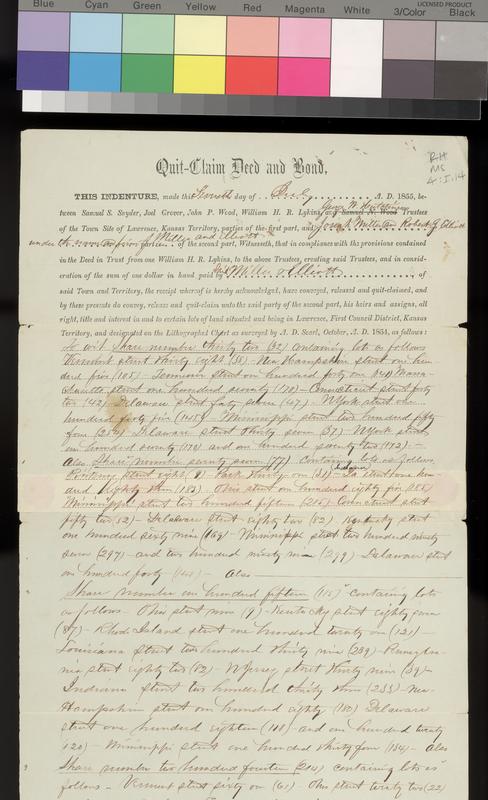 Blue Cyan Green Yellow Red Magenta White 3/Color Black
LICENSED PRODUCT
RH
MS
4:I.14
Quit-Claim Deed and Bond,
THIS INDENTURE, made this day of A. D. 1855, be-
tween Samuel S. Snyder, Joel Grover, John P. Wood, William H. R. Lykins, and Samuel N. Wood Trustees
of the Town Site of Lawrence, Kansas Territory, parties of the first part, and John A. Miller and Robert G. Elliott
under the name of Miller and Elliott of the second part, Witnesseth, that in compliance with the provisions contained
in the Deed in Trust from one William H. R. Lykins, to the above Trustees, creating said Trustees, and in consid-
eration of the sum of one dollar in hand paid by said Miller & Elliott of
said Town and Territory, the receipt whereof is hereby acknowledged, have conveyed, released and quit-claimed, and
by these presents do convey, release and quit-claim unto the said party of the second part, his heirs and assigns, all
right, title and interest in and to certain lots of land situated and being in Lawrence, First Council District, Kansas
Territory, and designated on the Lithographed Chart as surveyed by A. D. Searl, October, A. D. 1854, as follows:
To wit Share number thirty two (32) containing lots as follows
Vermont street thirty eight (38) - New Hampshire street one hun
dred five (105) - Tennessee street one hundred forty one (141) Massa-
chusetts street one hundred seventy (170) - Connecticut street forty
two (42) Delaware street forty seven (47) - N York street one
hundred forty five (145) - Mississippi street two hundred fifty
four (254) Delaware street thirty seven (37) - N York street
one hundred seventy (170) and one hundred seventy two (172) -
Also Share number seventy seven (77) containing lots as follows
street eight (8) Park thirty one (31) - street one hun
dred eighty three (183) - Ohio street one hundred eighty five (185)
Mississippi street two hundred fifteen (215) Connecticut street
fifty two (52) - Delaware street eighty two (82) Kentucky street
one hundred sixty nine (169) - Mississippi street two hundred ninety
seven (297) - and two hundred ninety nine (299) - Delaware street
one hundred forty (140) - Also
Share number one hundred fifteen (115) containing lots
as follows - Ohio street nine (9) - Kentucky street eighty seven
(87) - Rhode Island street one hundred twenty one (121) -
Louisiana Street two hundred thirty nine (239) - Pennsylva-
nia street eighty two (82) - N Jersey street thirty nine (39) -
Indiana street two hundred thirty three (233) - New
Hampshire street one hundred eighty (180) Delaware
street one hundred eighteen (118) - and one hundred twenty
(120) - Mississippi street one hundred thirty four (134) - Also
Share number two hundred fourteen (214) containing lots as
follows - Vermont street sixty one (61) - Ohio street twenty two (22)